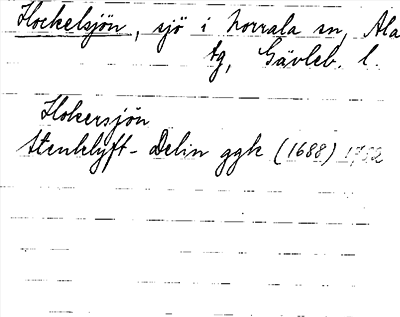 Hockelsjön, sjö i Norrala sn, Ala
tg, Gävleb. l.
Hokersjön
Stenklyft-Delin ggk (1688) 1752